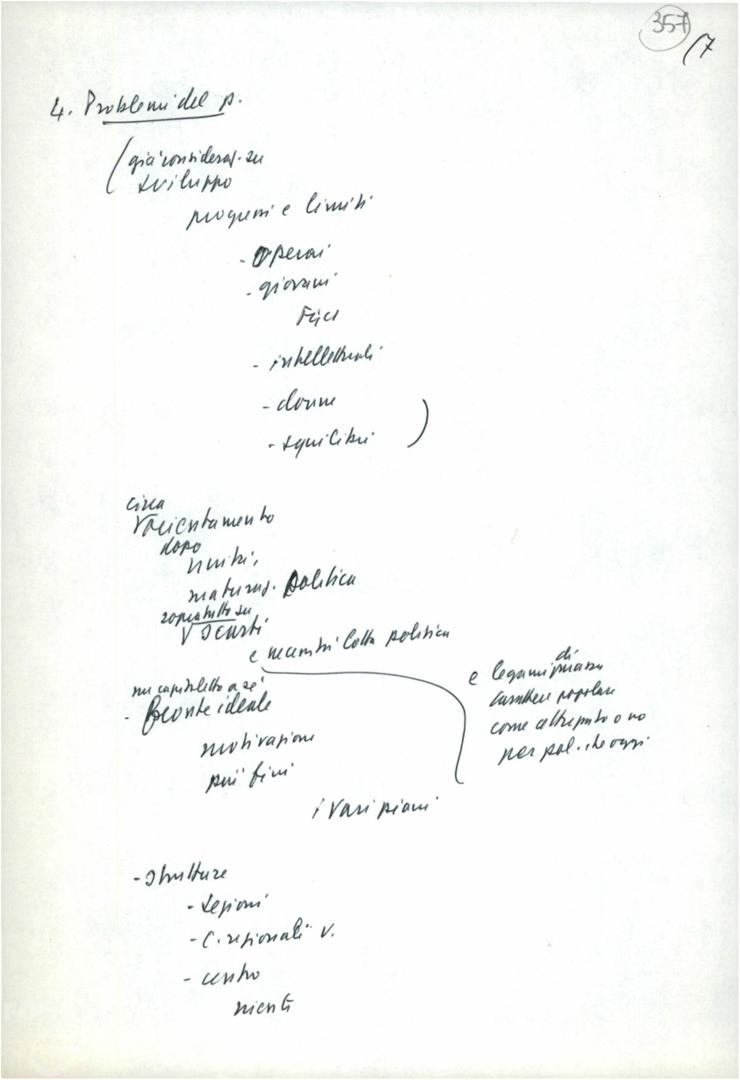 357
/7
4. Problemi del p.
(già consideraz. su
sviluppo
progressi e limiti
- operai
- giovani
Fgci
- intellettuali
- donne
- squilibri )
circa
V orientamento
dopo
unità,
maturaz. politica
sopratutto su
V scarti
e necessità lotta politica
e legami di massa
carattere popolare
come altro punto o no
per pol. che oggi
un capitoletto a sé
- fronte ideale
motivazione
più fini
i vari piani
- strutture
- sezioni
- C. regionali v.
- centro
niente